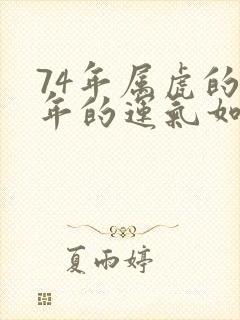 74年属虎的
年的运气如
夏雨婷